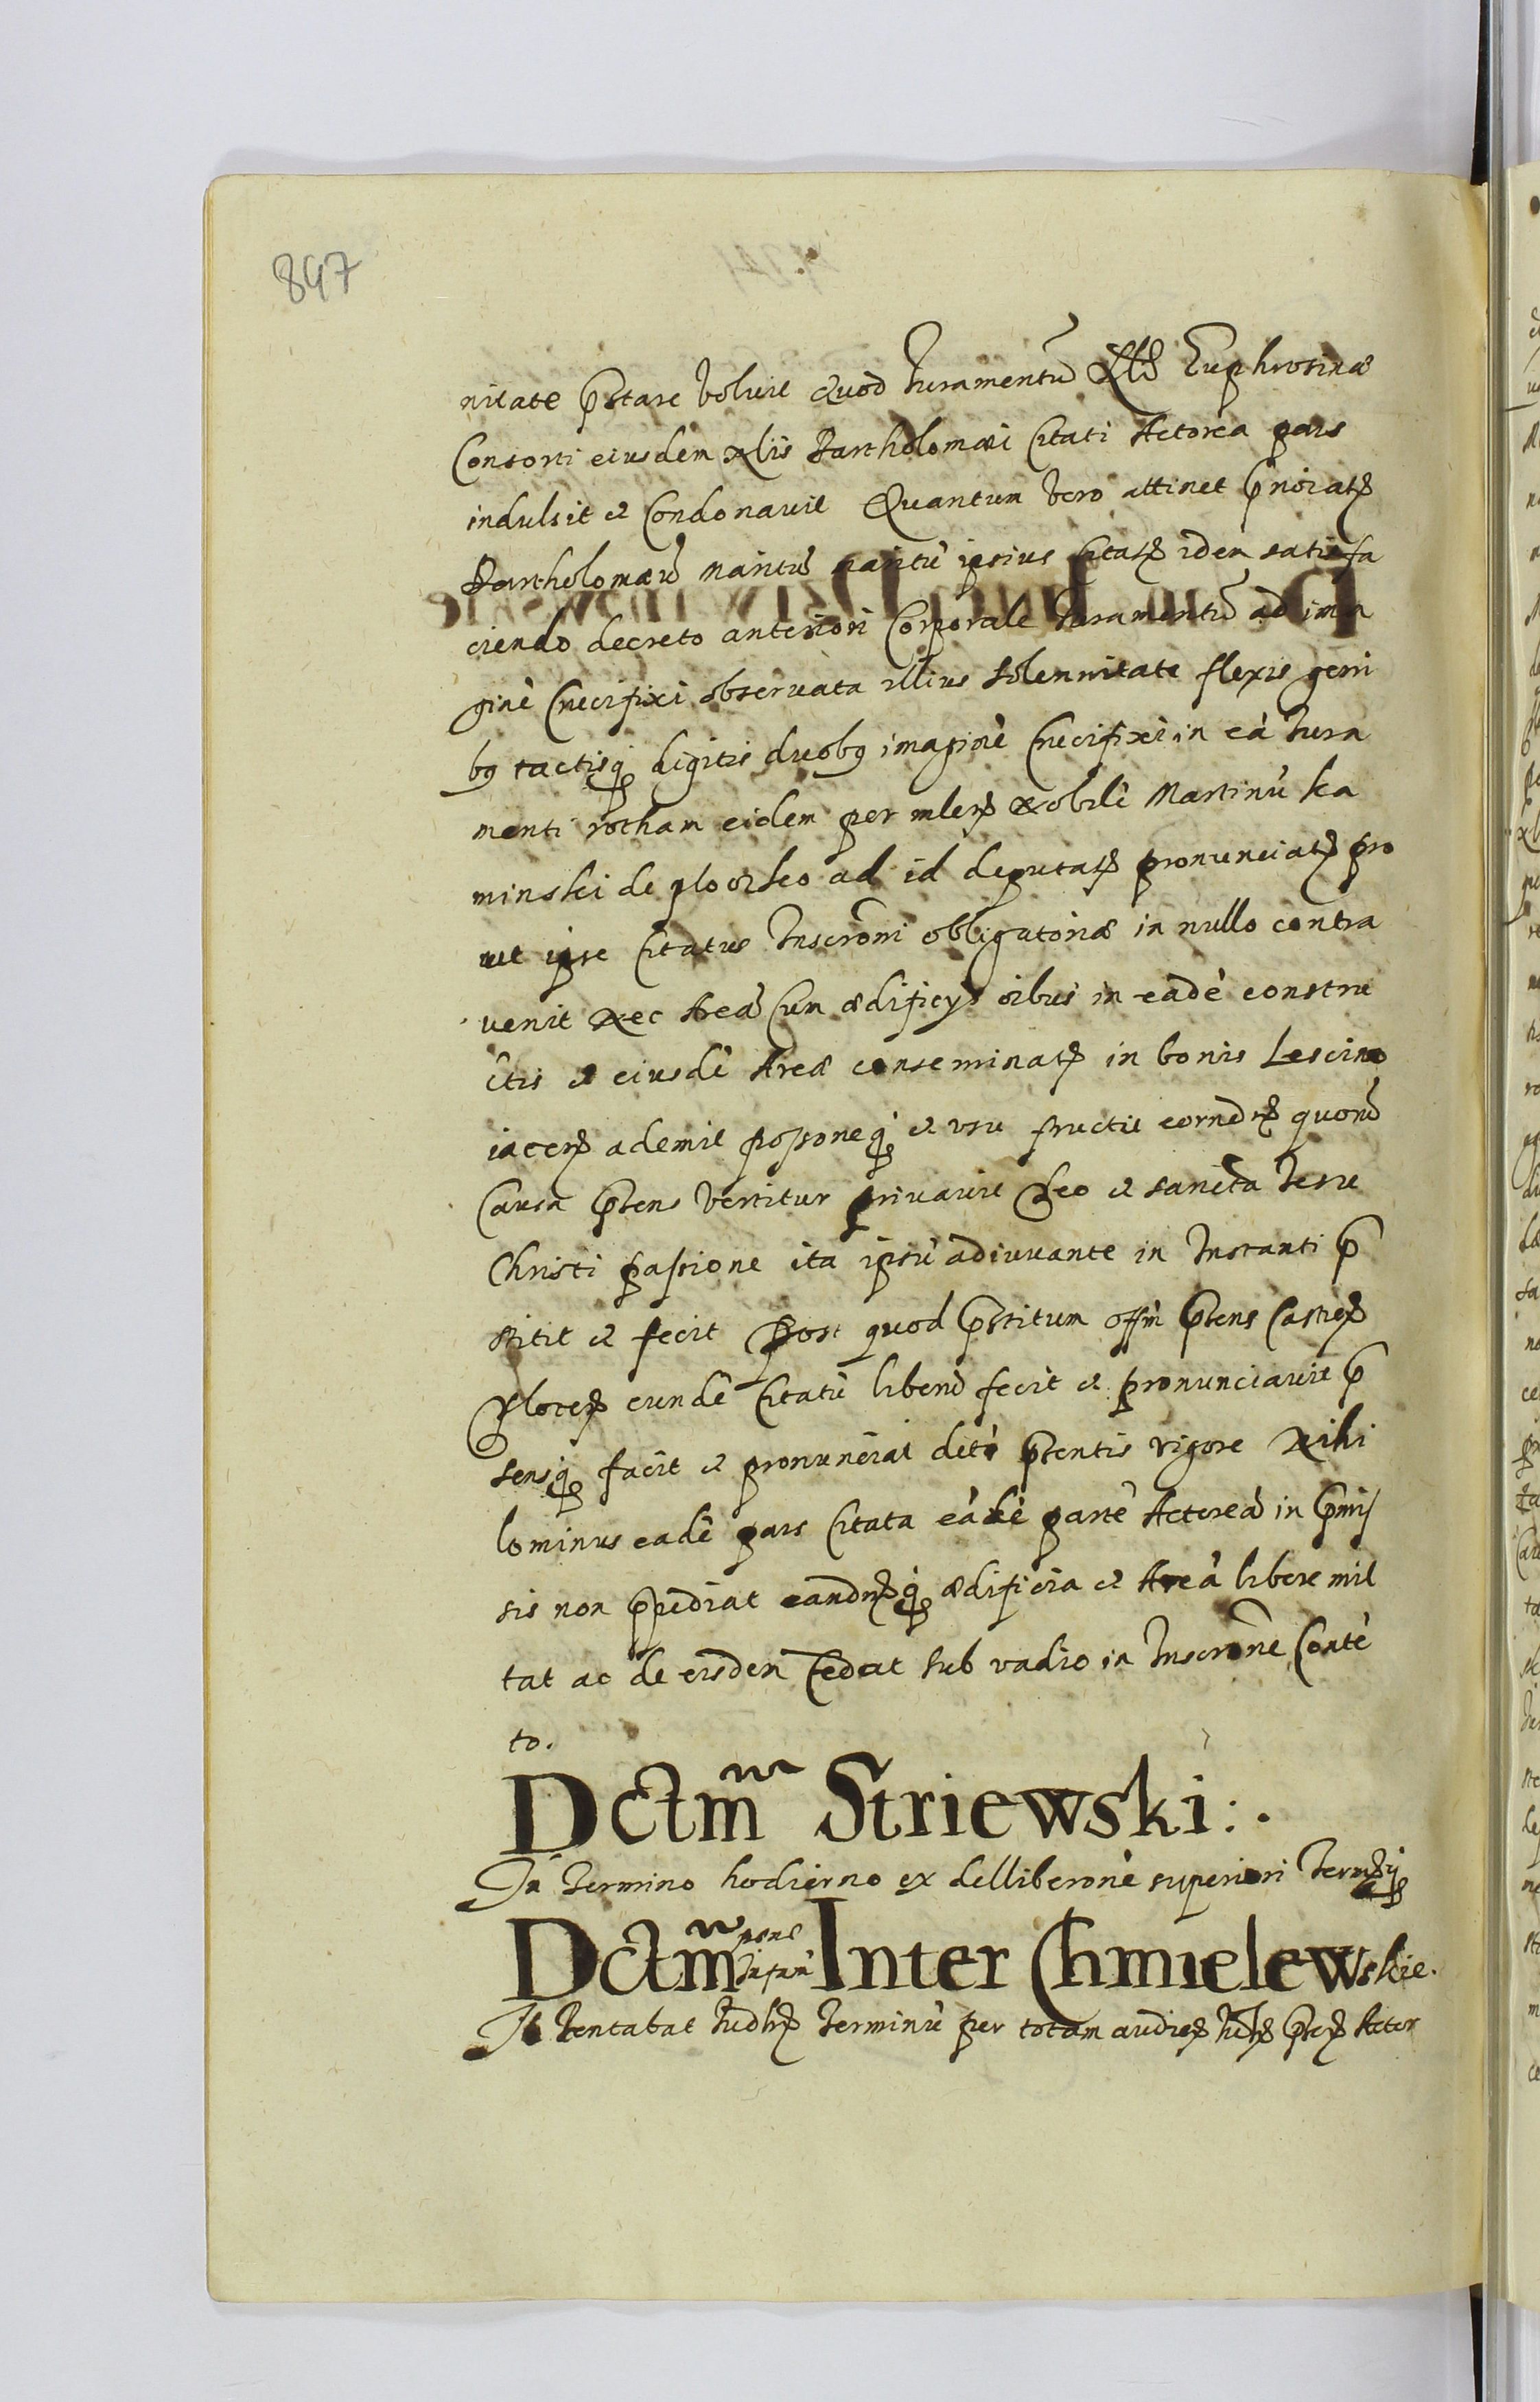 897
nitate pstare voluit Quod Juramentū Nlis Euphrosinæ
Consorti eiusdem Nlis Bartholomæi Citati Actorea pars
indulsit et Condonavit Quantum vero attinet pnoīatū
Bartholomæū maritū maritū ipsius Citatū idem satisfa
ciendo decreto anteriori Corporale Juramentū ad ima
ginē Crucifixi observata illius Solennitate flexis geni
bq tactisq digitis duobq imaginē Crucifixi in eā Jura
menti rotham eidem per mlem Nobilē Martinū Ka
minski de ad id deputatū pronunciatā pro
ut ipse Citatus Inscrōni obligatoriæ in nullo contra
venit Nec Areā Cum ædificys oībus in eadē constru
ctis et eiusdē Areæ conseminatū in bonis Lescino
iacen ademit possoneq et usu fructu eorundem quorū
Causa pñens vertitur privavit Deo et sancta Jesu
Christi passione ita ipsū adiuvante in Instanti p
stitit et fecit Post quod pstitum offm pñens Castren
Plocen eundē Citatū liberū fecit et pronunciavit p
sensq facit et pronunciat dcti psentis vigore Nihi
lominus eadē pars Citata eādē partē Actoreā in pmis
sis non ppediat eandemq ædificia et Areā libere mit
tat ac de eisdem Cedat Sub vadio in Inscrōne Contē
to.
Dctm Striewski:.
In Termino hodierno ex delliberonē superiori
Dctm Inter Chmielewskie.
Tentabat Judle Terminū per totam audien Actor